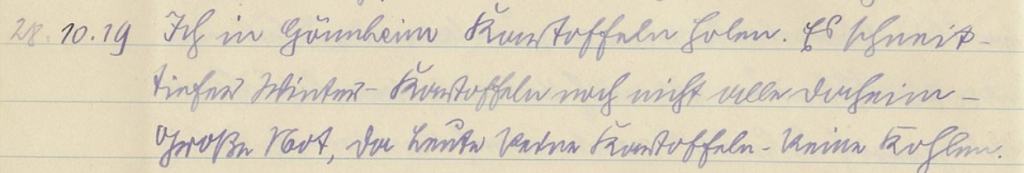 28.10.19 Ich in Gönnheim Kartoffeln holen. Es schneit-
tiefer Winter- Kartoffeln noch nicht alle daheim-
Große Not, da Leute keine Kartoffeln- keine Kohlen.